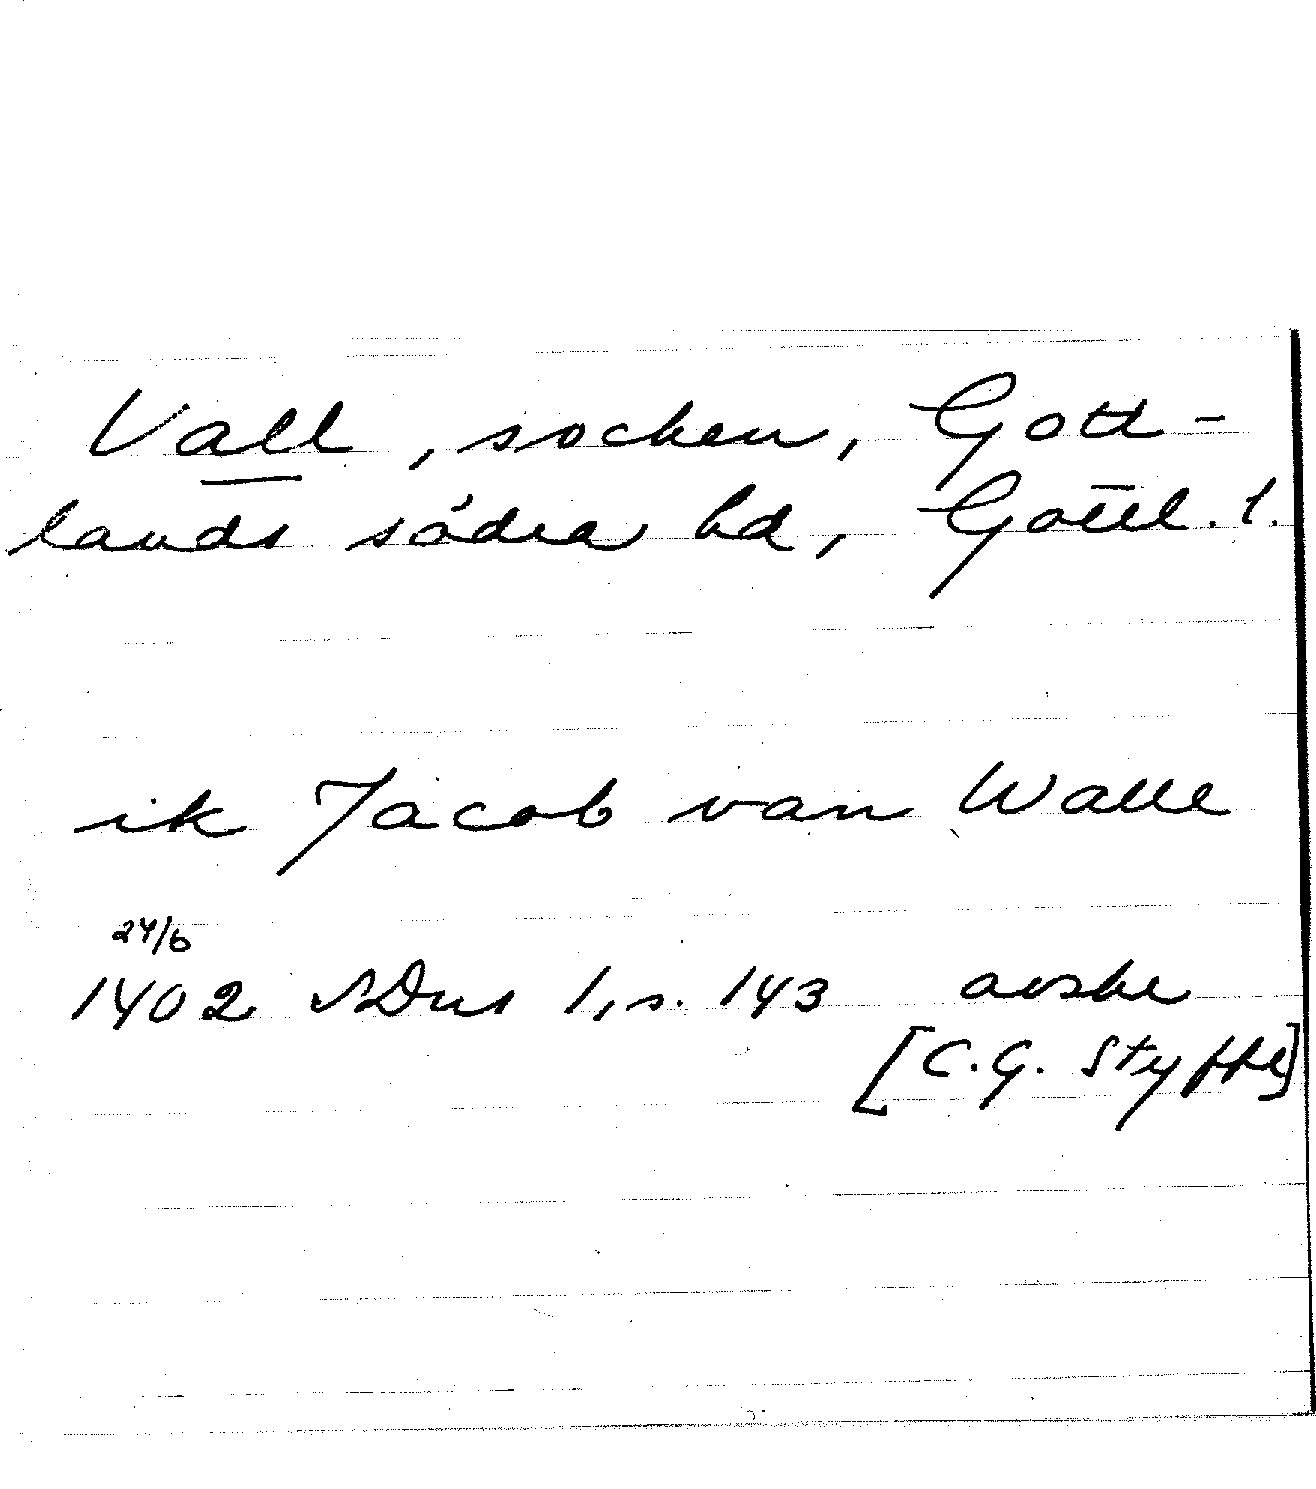 Vall, socken, Gott-
lands södra hd, Gottl. l.
ik Jacob van Walle
24/6
1402 SDns 1, s. 143 avskr
[C.G. Styffe]